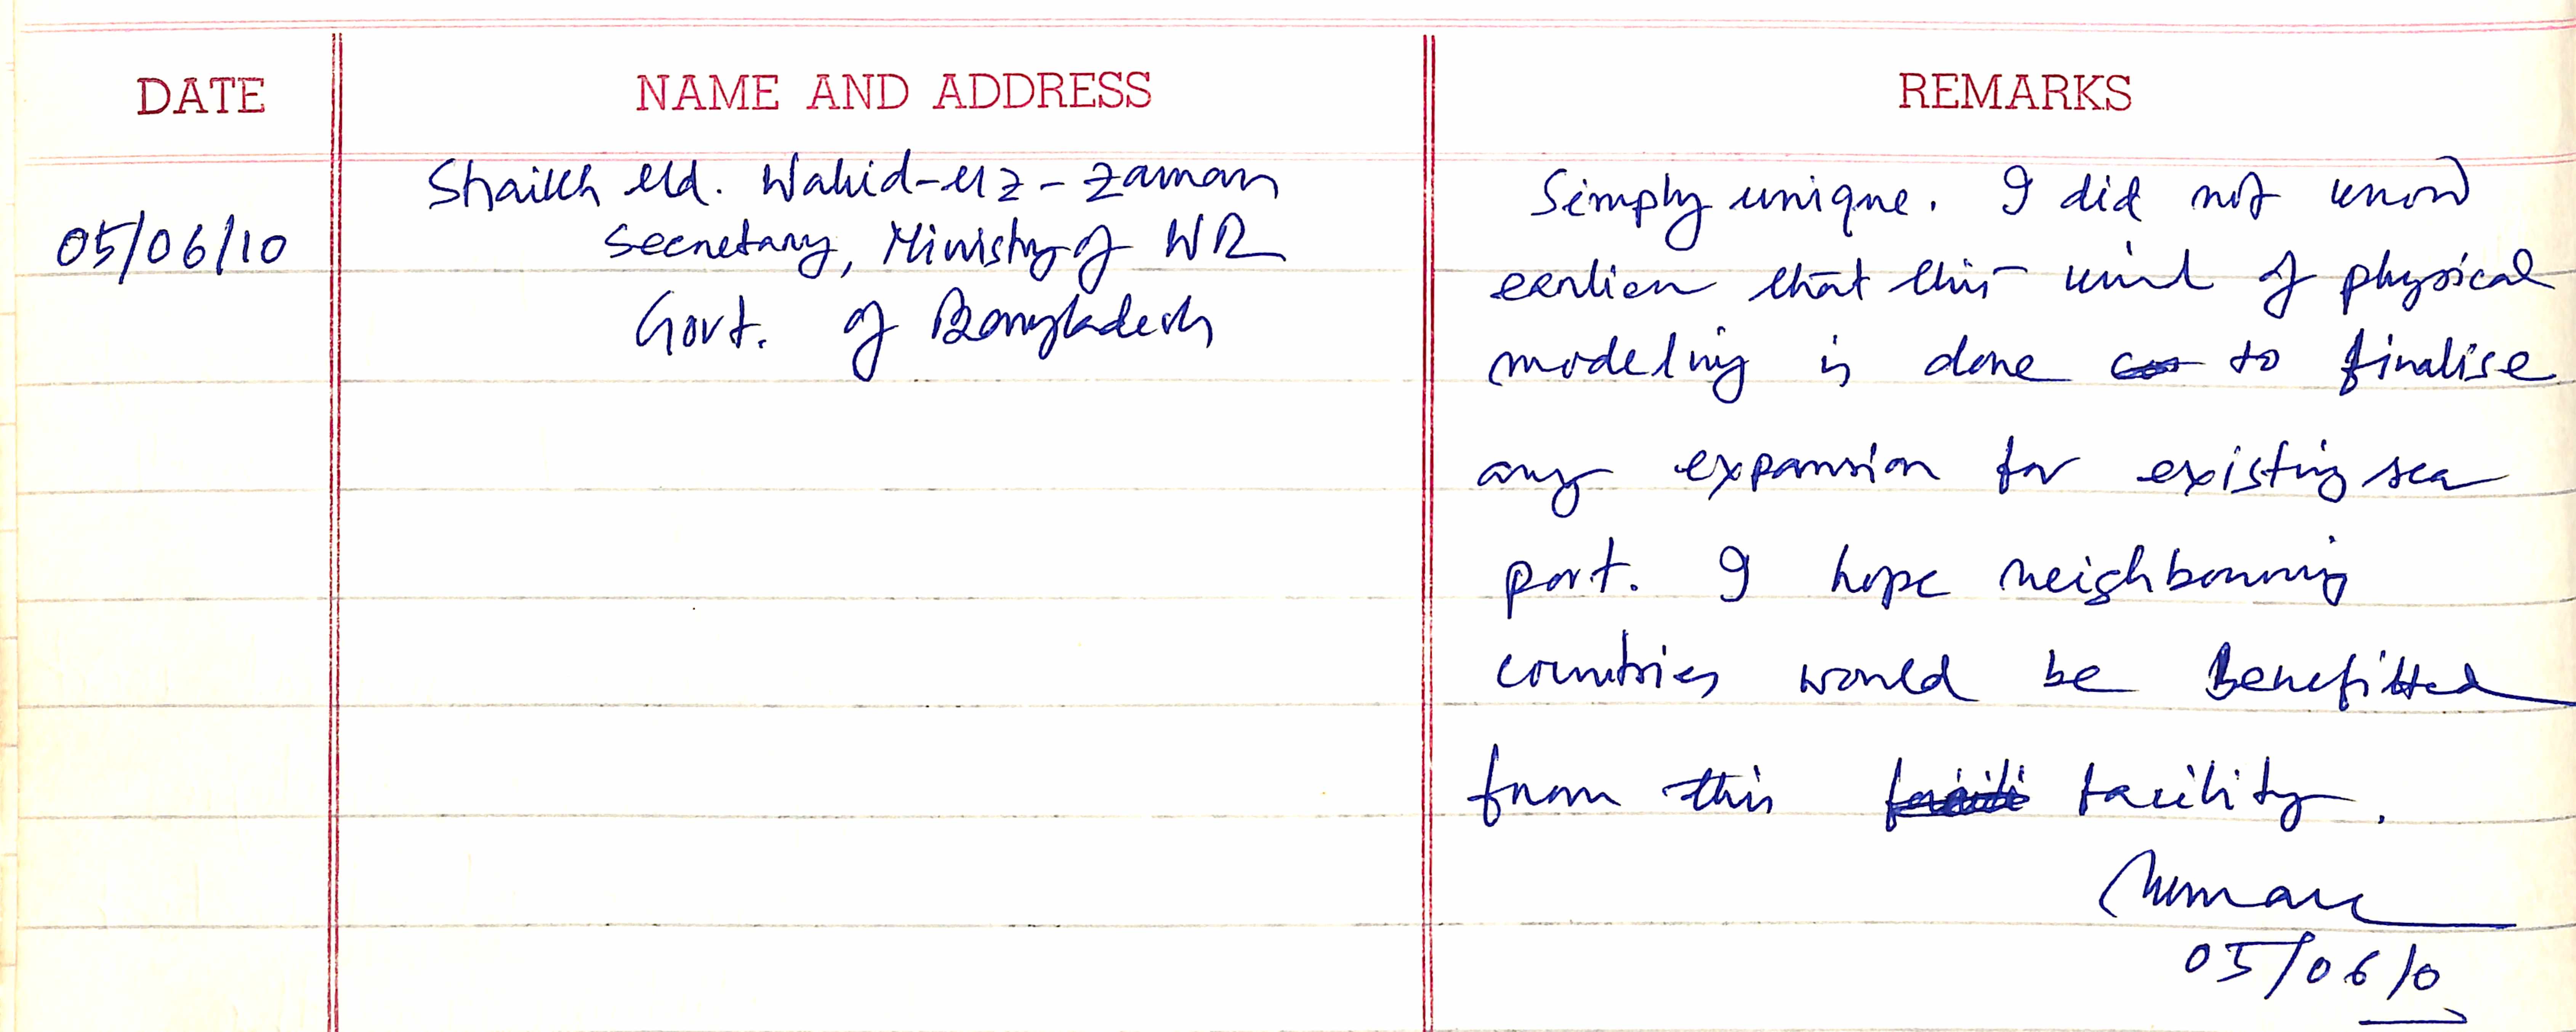 DATE NAME AND ADDRESS REMARKS
05/06/10
Shaikh Md. Wahid-uz-Zaman
Secretary, Ministry of WR
Govt. of Bangladesh
Simply unique. I did not know
earlier that this kind of physical
modeling is done to finalise
any expansion for existing sea
port. I hope neighbouring
countries would be benefitted
from this facility.
05/06/10